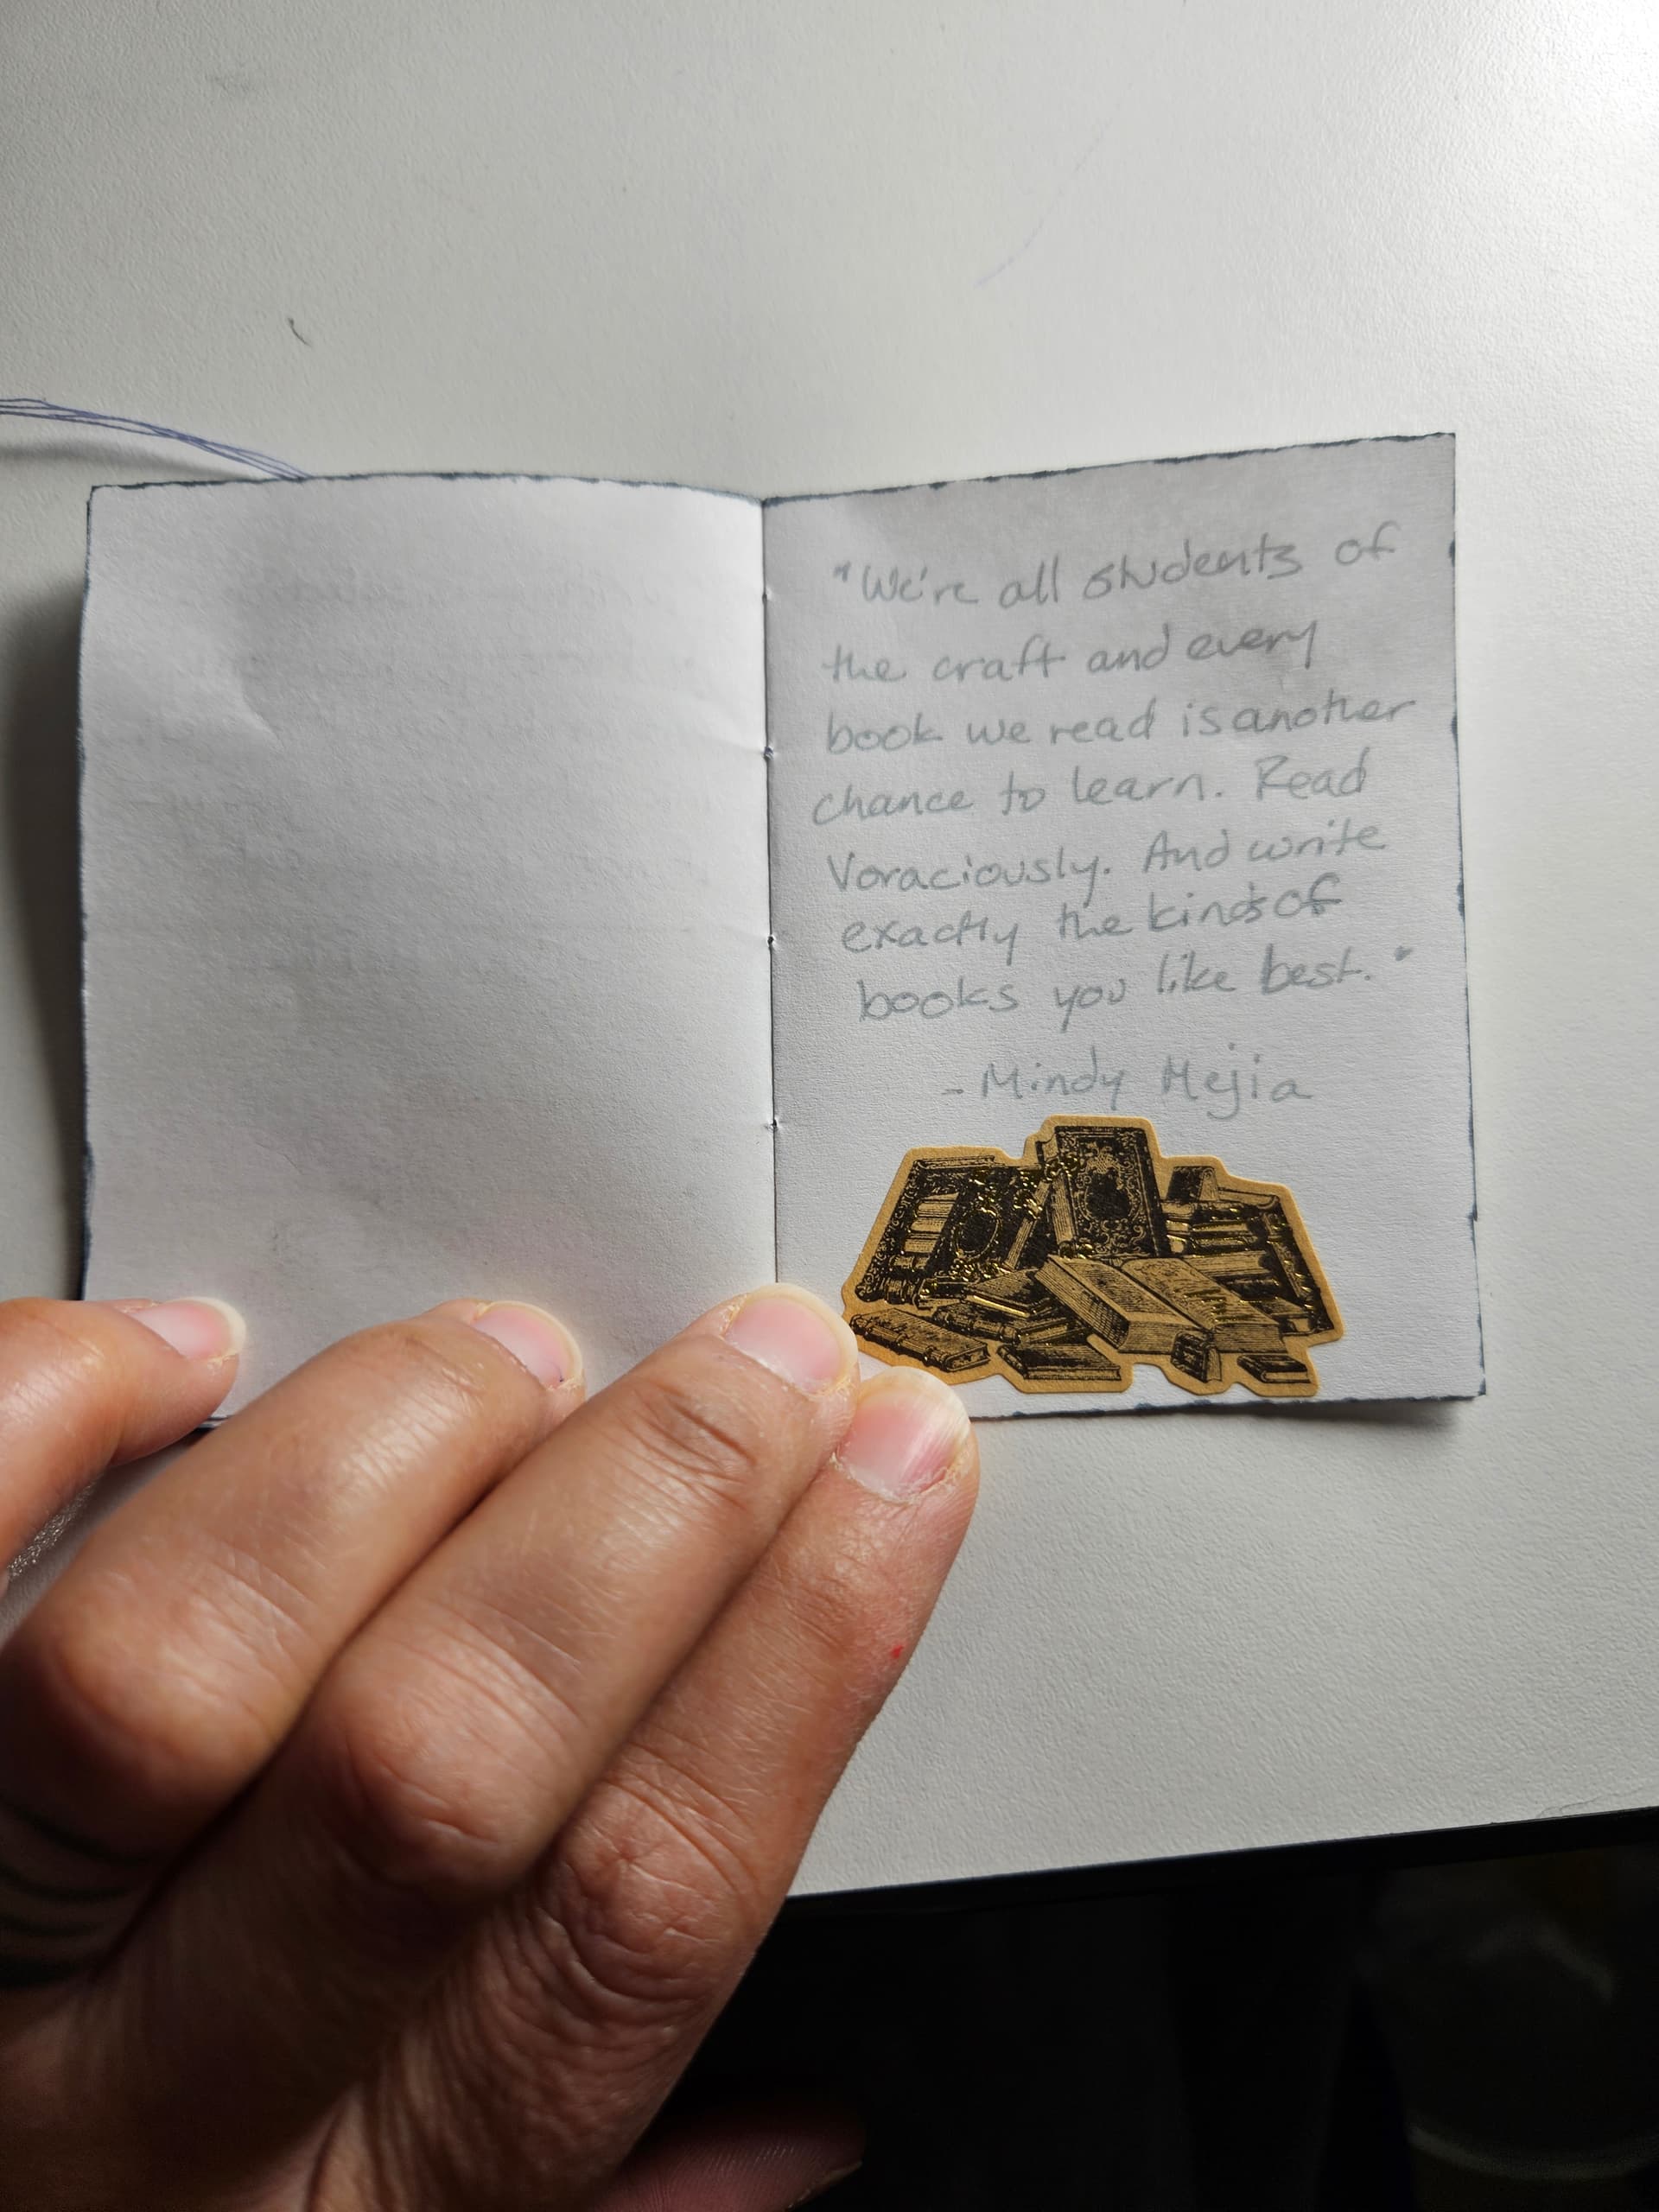 "We're all students of
the craft and every
book we read is another
chance to learn. Read
Voraciously. And write
exactly the kinds of
books you like best."
- Mindy Mejia